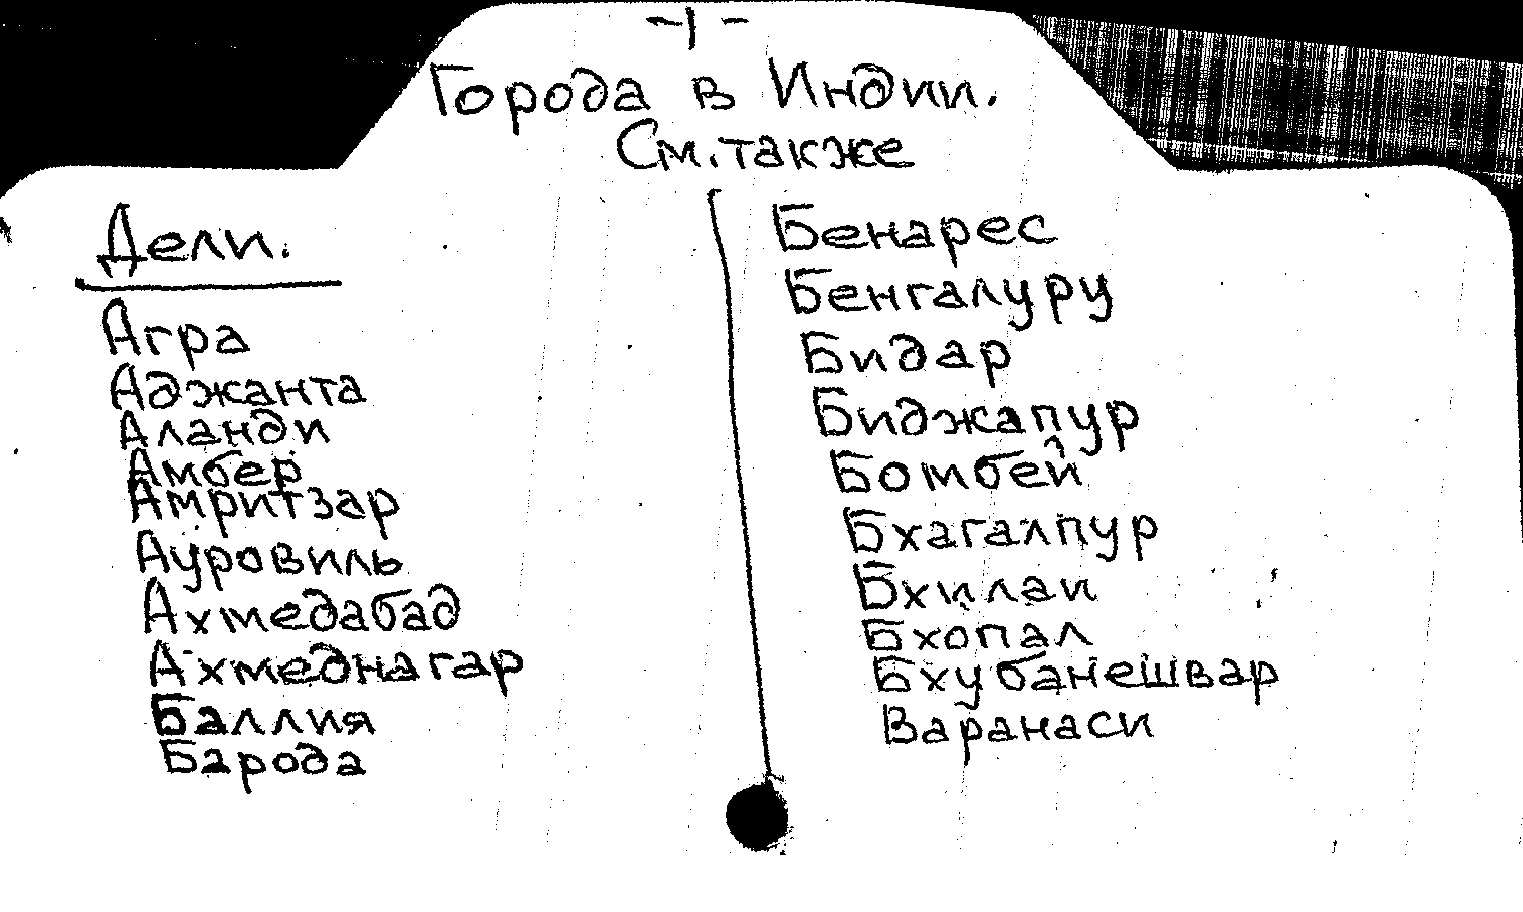 -1-
Города в Индии.
См. также
Дели.
Агра
Аджанта
Аланди
Амбер
Амритзар
Ауровиль
Ахмедабад
Ахмеднагар
Баллия
Барода
Бенарес
Бенгалуру
Бидар
Биджапур
Бомбей
Бхагалпур
Бхилаи
Бхопал
Бхубанешвар
Варанаси